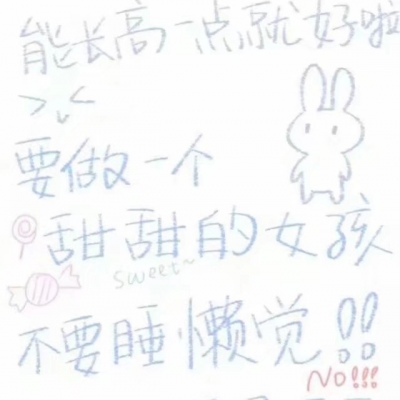 能长高一点就好啦
要做一个
甜甜的女孩
sweet~
不要睡懒觉!!
NO!!!